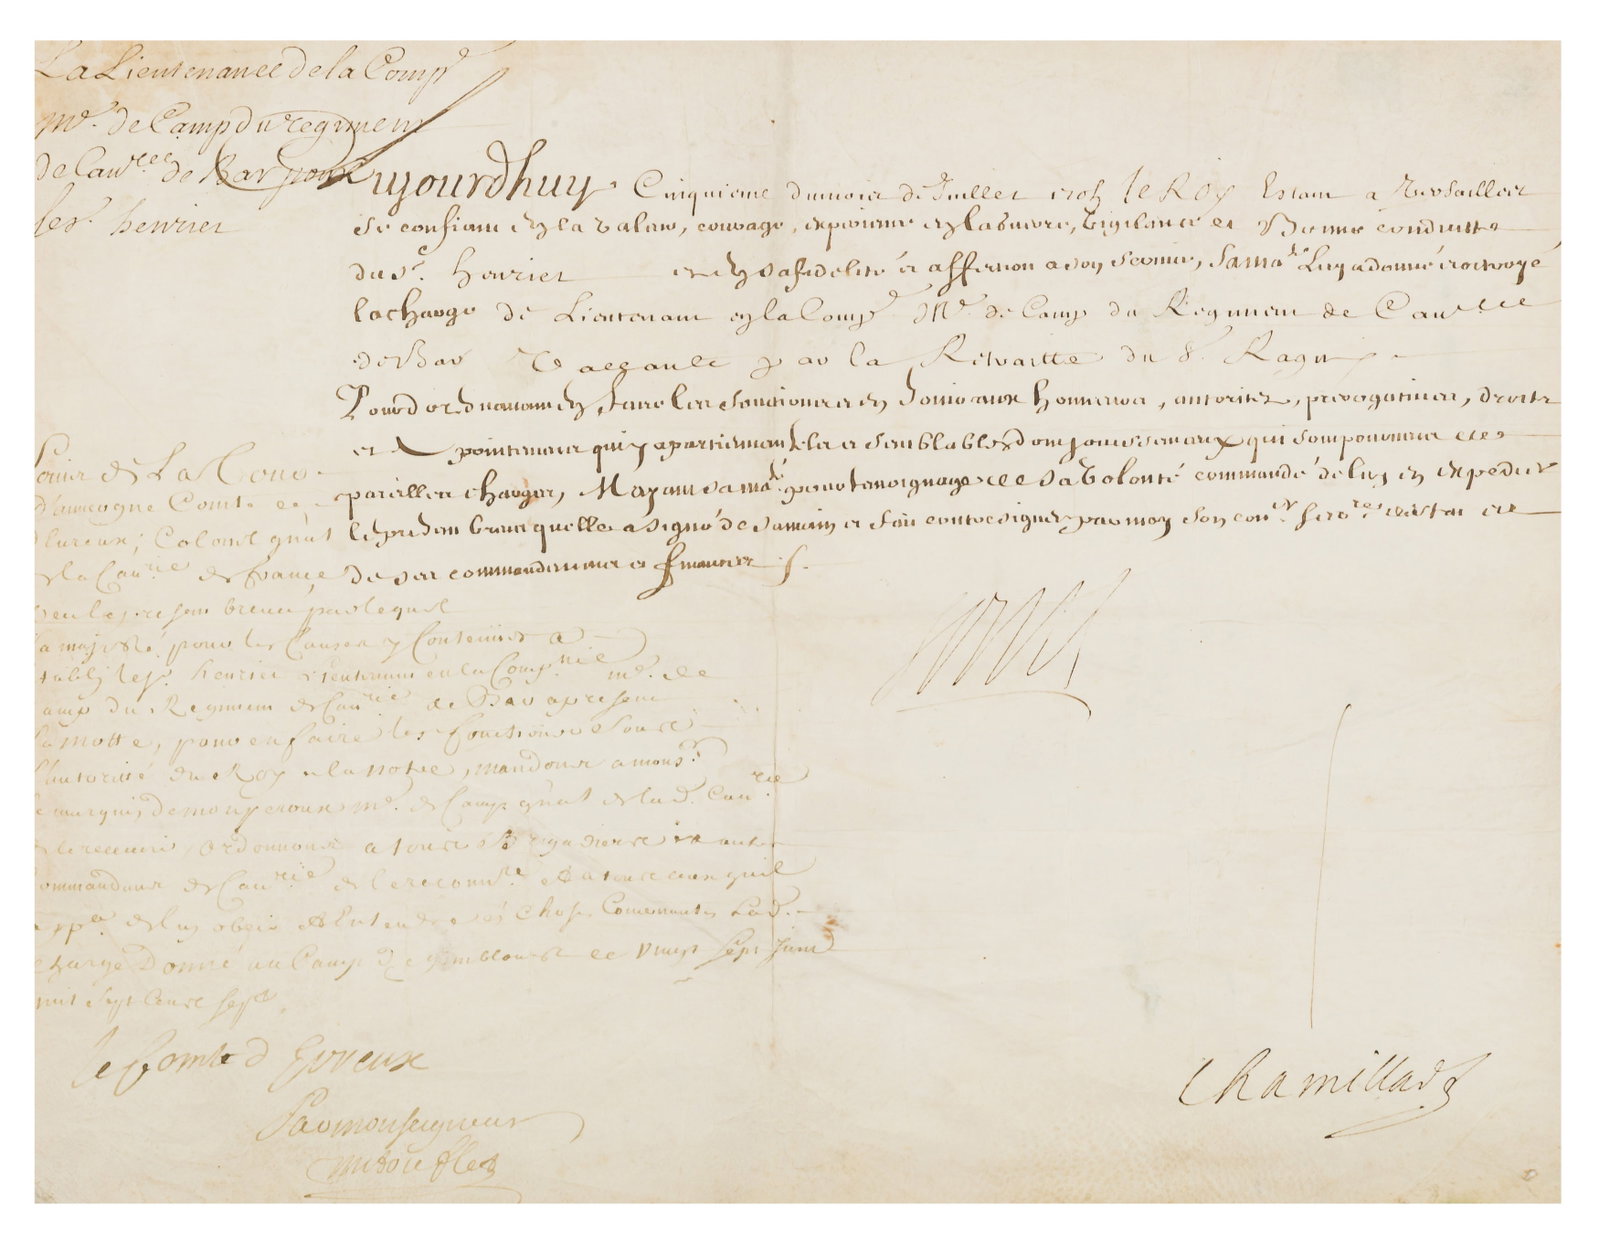 La Lieutenance de la Comp.e
M.e de Camp du regiment
de Cav.rie de Bar pour
le s.r henrier
Aujourdhuy Cinquieme du mois de Juillet le Roy Estant a Versailles
Se confiant en la Valeur, courage, experience en la Guerre, Vigilance et Bonne conduitte
du S.r henrier et en sa fidelité et affection a son Service, Sa Ma.té Luy a donné et octroyé
la charge de Lieutenant en la Comp.e M.e de Camp du Regiment de Cav.rie
de Bar Vaccante par la Retraitte du S.r
Pour d'oresnavant en faire les fonctions et en Jouir aux honneurs, autoritez, prerogatives, droits
et apointemens qui y apartiennent tels et semblables dont jouissent ceux qui sont pourveus de
pareilles charges, M'ayant Sa Ma.té pour temoignage de Sa Volonté commandé de luy en expedier
le present brevet quelle a signé de sa main et fait contresigner par moy son con.er Secre.re d'Estat et
de ses commandemens et finances
Louis
Chamillart
de La Tour
d'auvergne Comte
d'Evreux, Colonel gñal
de la Cav.rie de france
Veu le present brevet par lequel
sa majesté pour les Causes y Contenües a
étably le s.r henrier Lieutenant en la Comp.nie m.e de
camp du Regiment de Cav.rie de Bar apresent
la motte, pour en faire les fonctions Sous
l'autorité du Roy et la notre, mandons a mons.r
le marquis de monperoux m.e de Camp gñal de lad. Cav.rie
de le recevoir, ordonnons a tous Brigadiers et autres
commandans de Cav.rie de le reconn.re et a tous ceux quil
app.a de luy obeir et Entendre és choses Concernantes Lad.
charge Donné au Camp de gembloux le Vingt Sept Juin
mil Sept Cens Sept.
le Comte d Evreux
Par monseigneur